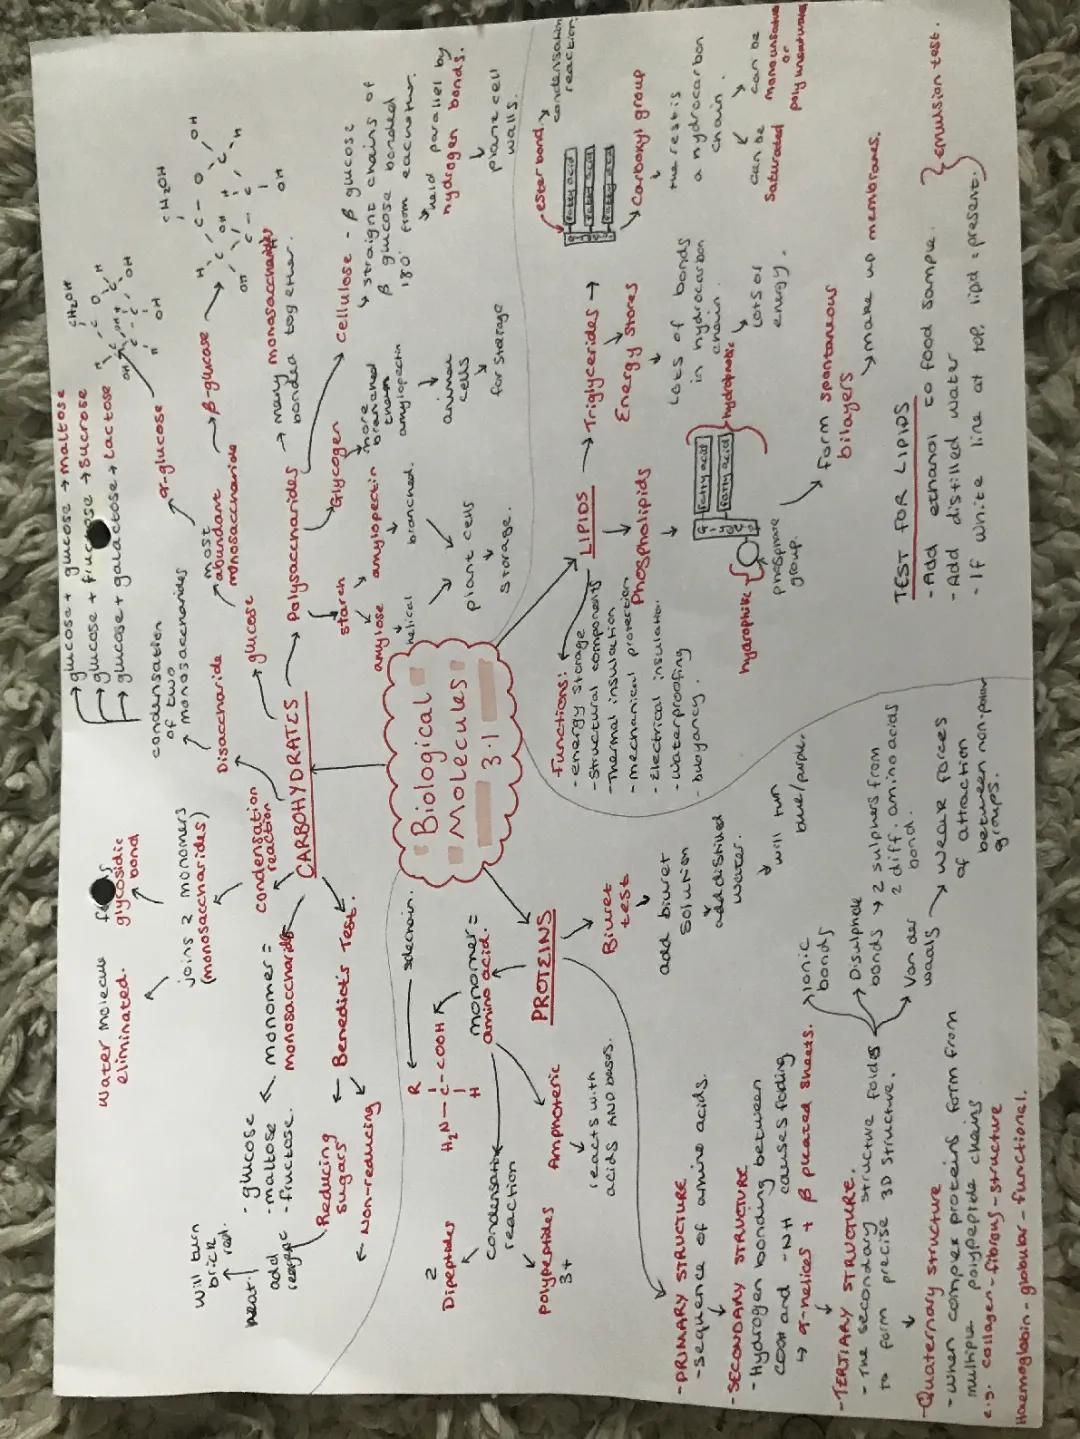 Biological
Molecules
3.1
CARBOHYDRATES
→ monomer =
monosaccharide
condensation
reaction
joins 2 monomers
(monosaccharides)
water molecule
eliminated.
glycosidic
bond
Disaccharide
condensation
of two
monosaccharides
→ glucose + glucose → maltose
→ glucose + fructose → sucrose
→ glucose + galactose → lactose
glucose
most
abundant
monosaccharide
α-glucose
CH2OH
β-glucose
CH2OH
Polysaccharides → many monosaccharides
bonded together.
starch
amylose
helical
amylopectin
branched.
plant cells
storage.
Glycogen
more
branched
than
amylopectin
animal
cells
for storage
cellulose - β glucose
↳ straight chains of
β glucose bonded
180° from eachother.
held parallel by
hydrogen bonds.
plant cell
walls.
Benedict's Test.
Reducing
sugars
- glucose
- maltose
- fructose.
add
reagent
heat.
will turn
brick
red.
Non-reducing
LIPIDS
Functions:
- energy storage
- structural components
- Thermal insulation
- mechanical protection
- Electrical insulation.
- waterproofing
- buoyancy.
Triglycerides →
ester bond.
condensation
reaction
fatty acid
fatty acid
fatty acid
carboxyl group
the rest is
a hydrocarbon
chain.
can be
saturated
can be
monounsaturated
or
polyunsaturated
Energy stores
Lots of bonds
in hydrocarbon
chain.
Lots of
energy.
Phospholipids
fatty acid
fatty acid
hydrophobic
hydrophilic
phosphate
group.
form spontaneous
bilayers
→ make up membranes.
TEST FOR LIPIDS
- Add ethanol to food sample.
- Add distilled water
- If white line at top, lipid = present.
emulsion test.
PROTEINS
monomer =
amino acid.
R
H2N — C — COOH
H
sidechain.
condensation
reaction
2
Dipeptides
polypeptides
3+
Amphoteric
reacts with
acids AND bases.
Biuret
test
add biuret
solution
add distilled
water.
will turn
blue/purple.
- PRIMARY STRUCTURE
- sequence of amino acids.
- SECONDARY STRUCTURE
- Hydrogen bonding between
COOH and -NH causes folding
↳ α-helices + β pleated sheets.
- TERTIARY STRUCTURE.
- The secondary structure folds
to form precise 3D structure.
Ionic
bonds
Disulphide
bonds → 2 sulphurs from
2 diff. amino acids
bond.
Van der
waals → weak forces
of attraction
between non-polar
groups.
- Quaternary structure
- when complex proteins form from
multiple polypeptide chains
e.g. collagen - fibrous - structure
Haemoglobin - globular - functional.